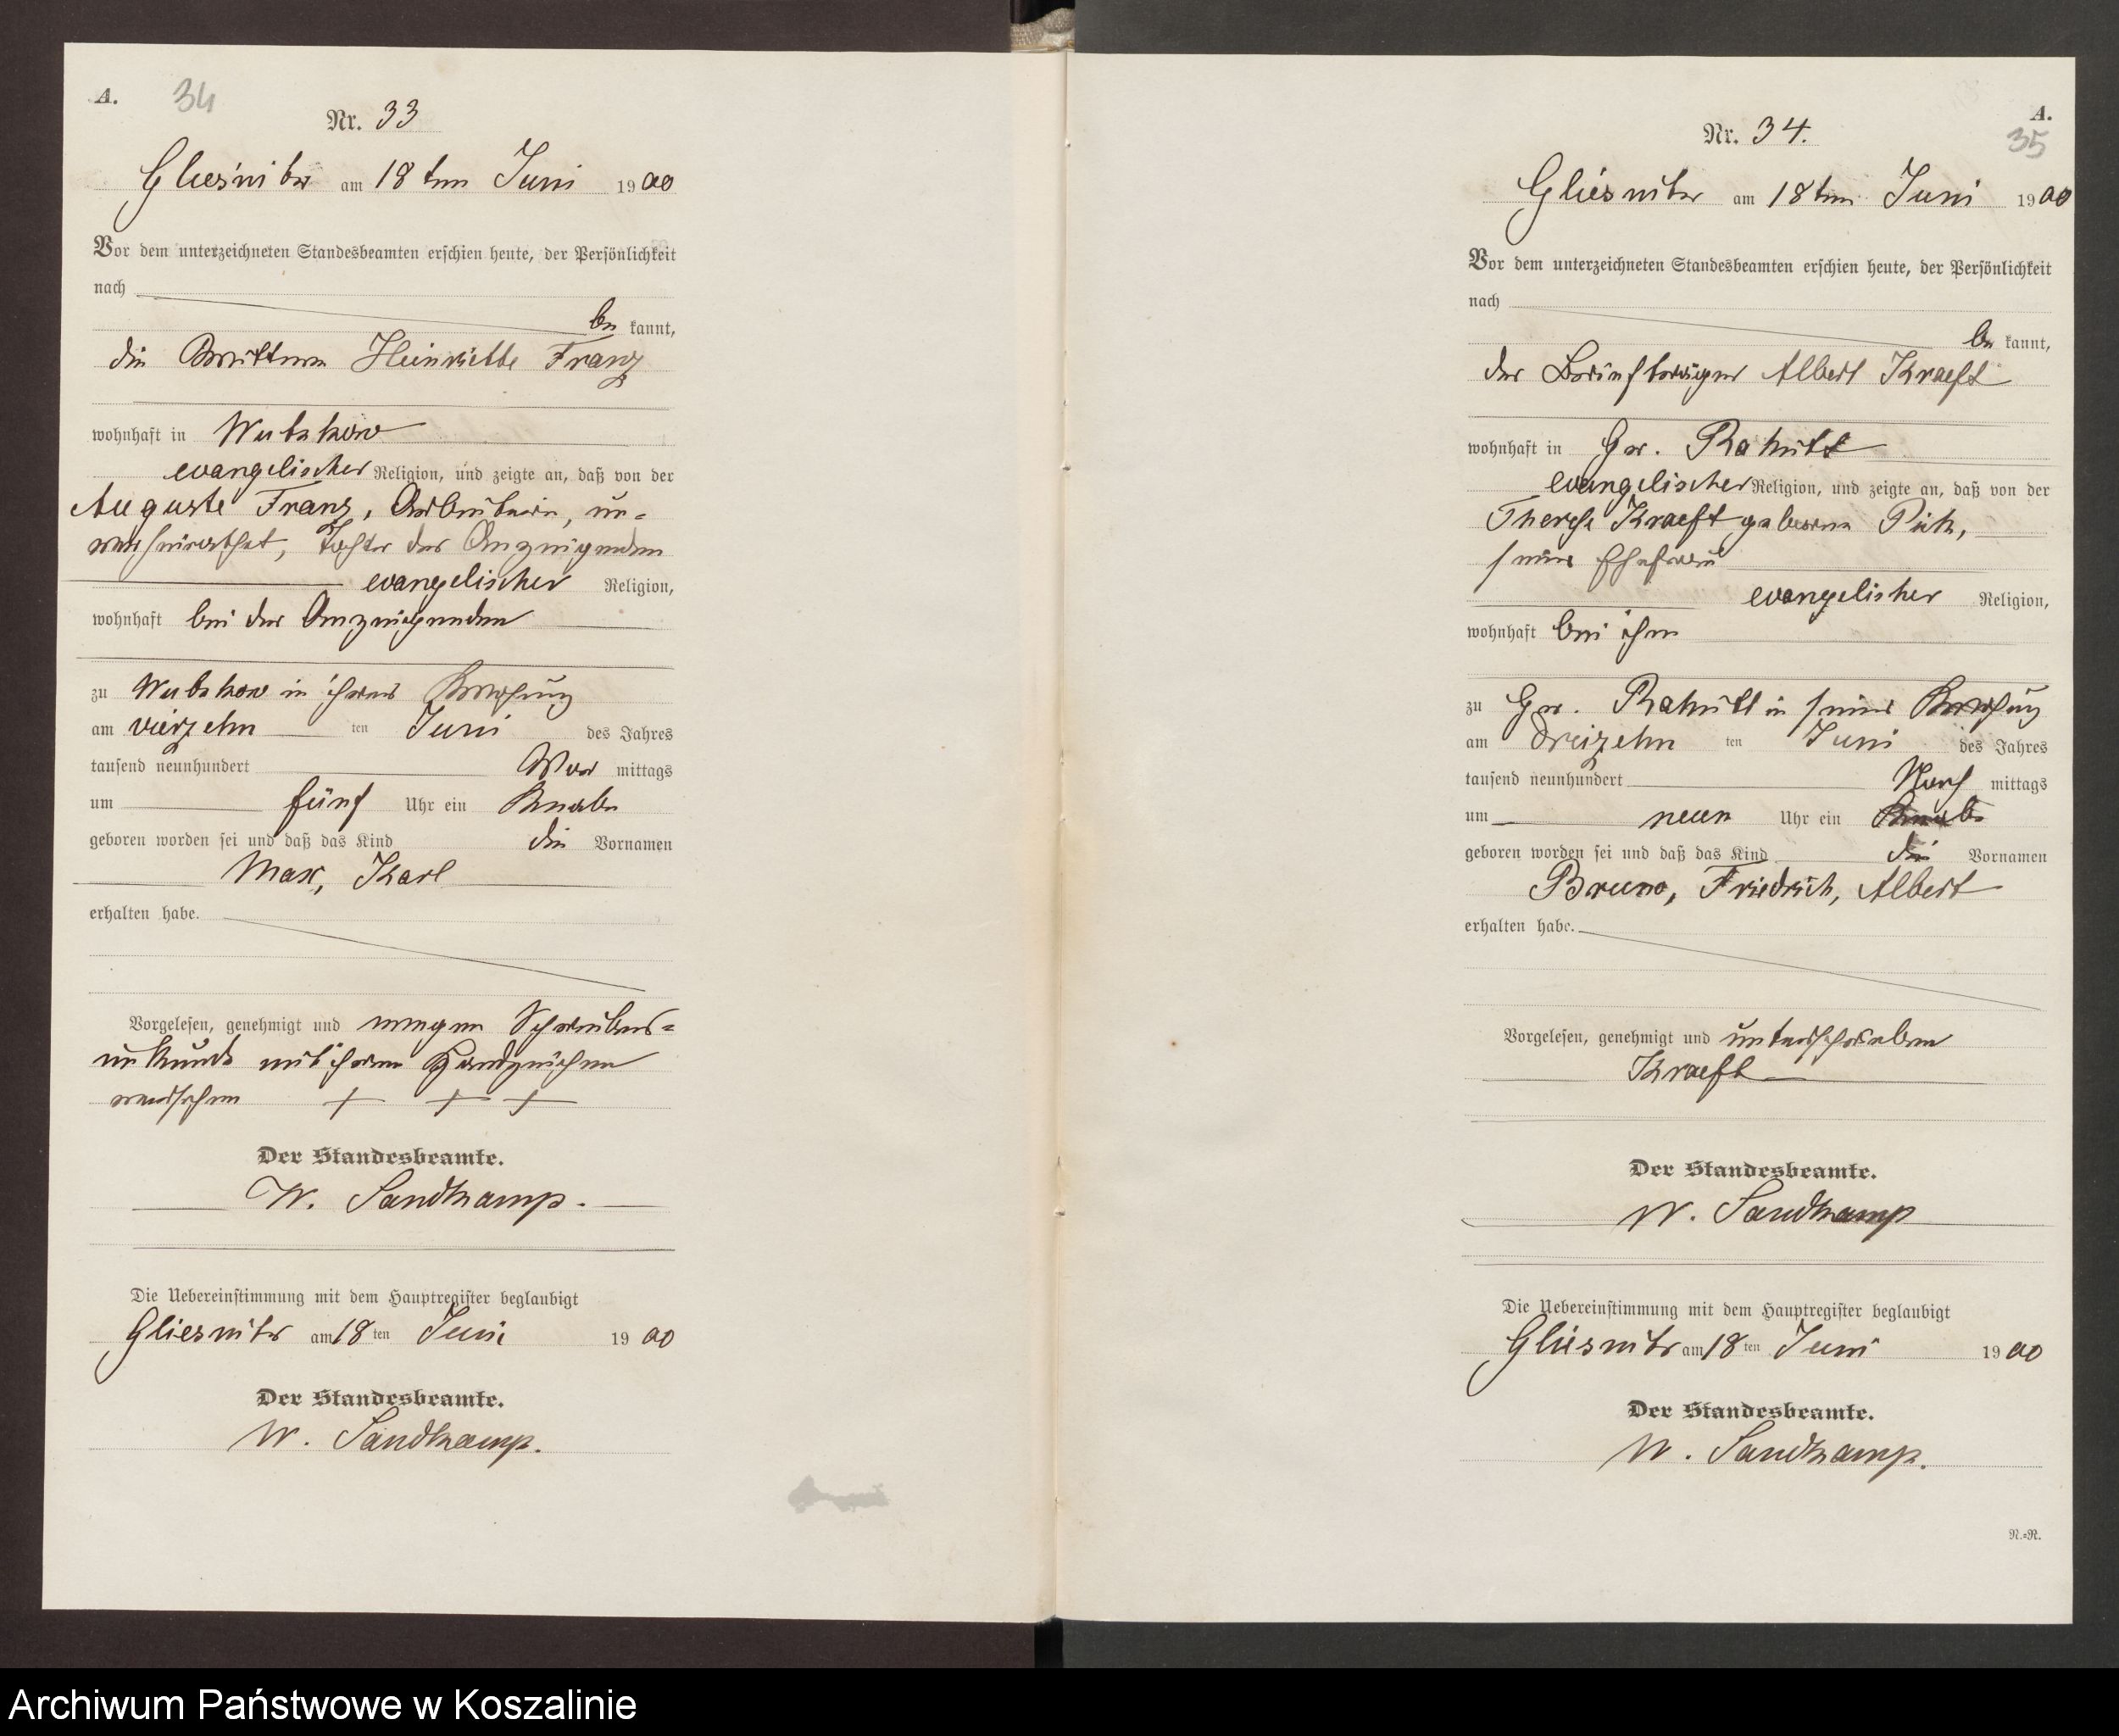 A. 34
Nr. 33
Gliesnitz am 18ten Juni 1900
Vor dem unterzeichneten Standesbeamten erschien heute, der Persönlichkeit
nach
be kannt,
die Henriette Franz
wohnhaft in Wutzkow
evangelischer Religion, und zeigte an, daß von der
Auguste Franz, Arbeiterin, un-
verheirathet, Tochter der Anzeigenden
evangelischer Religion,
wohnhaft bei der Anzeigenden
zu Wutzkow in ihrer Wohnung
am vierzehn ten Juni des Jahres
tausend neunhundert Vor mittags
um fünf Uhr ein Knabe
geboren worden sei und daß das Kind die Vornamen
Max, Karl
erhalten habe.
Vorgelesen, genehmigt und wegen Schreibens-
unkunde mit ihrem Handzeichen
versehen + + +
Der Standesbeamte.
W. Sandkamp.
Die Uebereinstimmung mit dem Hauptregister beglaubigt
Gliesnitz am 18 ten Juni 1900
Der Standesbeamte.
W. Sandkamp.
A.
35
Nr. 34.
Gliesnitz am 18ten Juni 1900
Vor dem unterzeichneten Standesbeamten erschien heute, der Persönlichkeit
nach
be kannt,
der Briefträger Albert Kraeft
wohnhaft in Gr. Rakitt
evangelischer Religion, und zeigte an, daß von der
Therese Kraeft geborene
seiner Ehefrau
evangelischer Religion,
wohnhaft bei ihm
zu Gr. Rakitt in seiner Wohnung
am dreizehn ten Juni des Jahres
tausend neunhundert Nach mittags
um neun Uhr ein Knabe
geboren worden sei und daß das Kind die Vornamen
Bruno, Friedrich, Albert
erhalten habe.
Vorgelesen, genehmigt und unterschrieben
Kraeft
Der Standesbeamte.
W. Sandkamp
Die Uebereinstimmung mit dem Hauptregister beglaubigt
Gliesnitz am 18 ten Juni 1900
Der Standesbeamte.
W. Sandkamp.
N.=R.
Archiwum Państwowe w Koszalinie